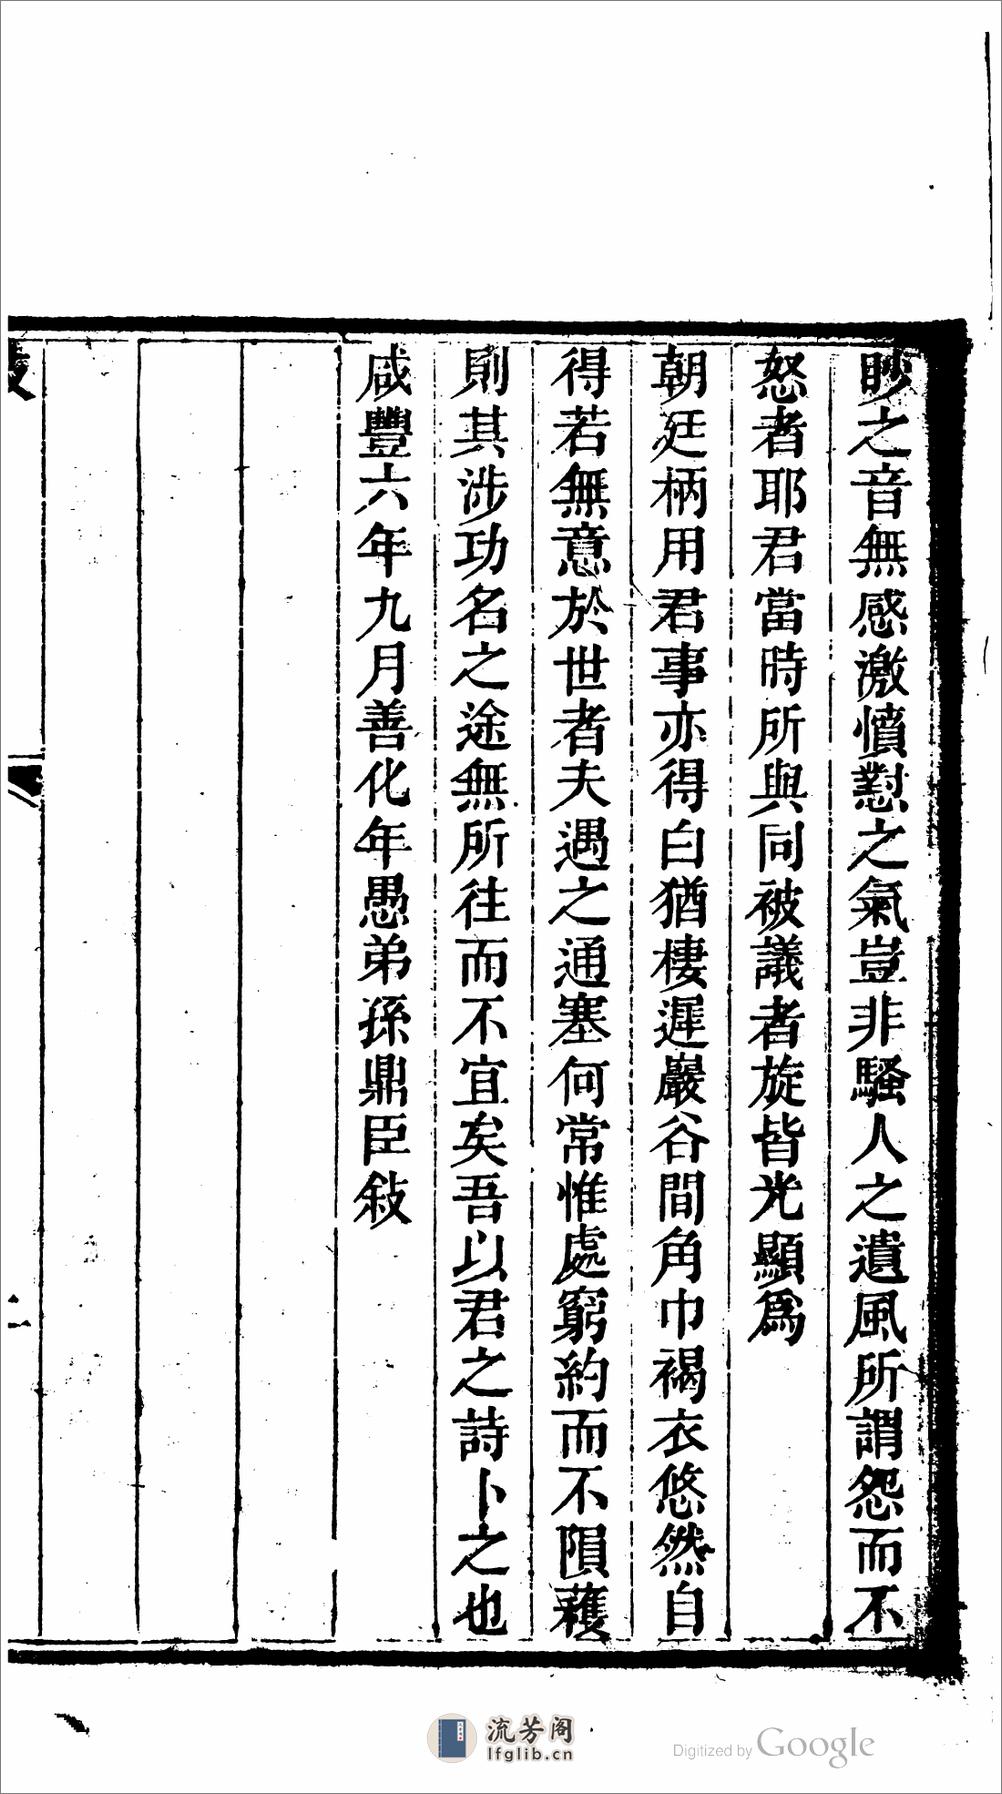 眇之音無感激憤懟之氣豈非騷人之遺風所謂怨而不
怒者耶君當時所與同被議者旋皆光顯爲
朝廷柄用君事亦得白猶棲遲巖谷間角巾褐衣悠然自
得若無意於世者夫遇之通塞何常惟處窮約而不隕穫
則其涉功名之途無所往而不宜矣吾以君之詩卜之也
咸豐六年九月善化年愚弟孫鼎臣敍
流芳阁
lfglib.cn
Digitized by Google